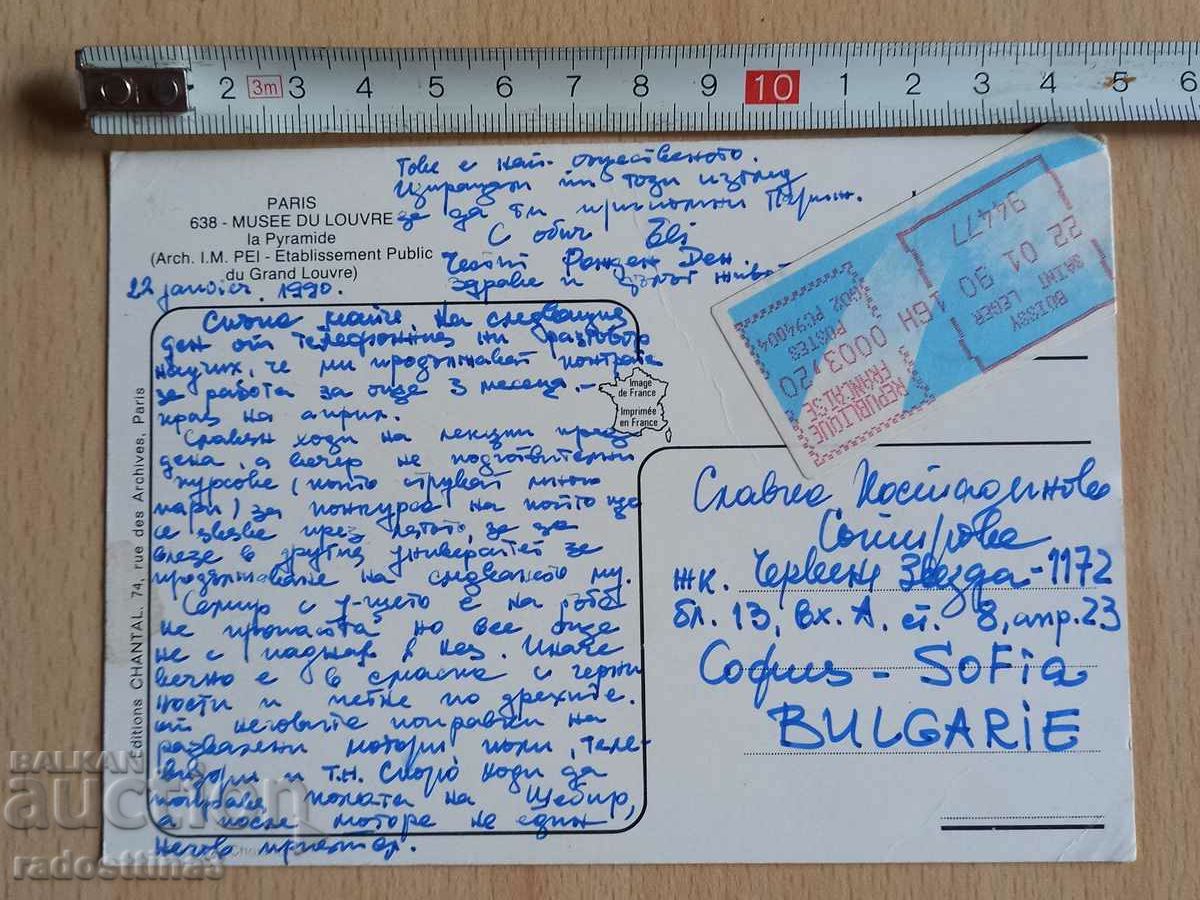 2 3m 3 4 5 6 7 8 9 10 1 2 3 4 5 6
PARIS
638 - MUSEE DU LOUVRE
la Pyramide
(Arch. I.M. PEI - Etablissement Public
du Grand Louvre)
22 janvier. 1990.
Това е най-същественото.
Изпращам ти този изглед
за да ти припомни Париж.
С обич
Честит Рожден Ден.
здраве и дълъг живот
на следващия
ден от телефонния ни разговор
научих, че ми продължават контракта
за работа за още 3 месеца -
край на април.
Славян ходи на лекции през
деня, а вечер на подготвителни
курсове (които струват много
пари) за конкурса на който ще
се явява през лятото, за да
влезе в другия университет за
продължаване на следването му.
Самир с у-щето е на ръба
на пропастта но все още
не е паднал в нея. Иначе
вечно е в смазка и черни
нокти и петна по дрехите
от неговите поправки на
развалени мотори, коли, теле-
визори и т.н. Скоро ходи да
поправя колата на
а после мотора на един
негов приятел.
Editions CHANTAL. 74, rue des Archives, Paris
Image
de France
Imprimée
en France
REPUBLIQUE
FRANÇAISE
0003,20
POSTES
PC94004
16H
BOISSY
SAINT LEGER
22 01 90
94477
Славка Костадинова
Сотирова
жк. Червена Звезда - 1172
бл. 13, вх. А, ет. 8, апр. 23
София - SOFia
BULGARIE
BALKAN
auction
radosttina3